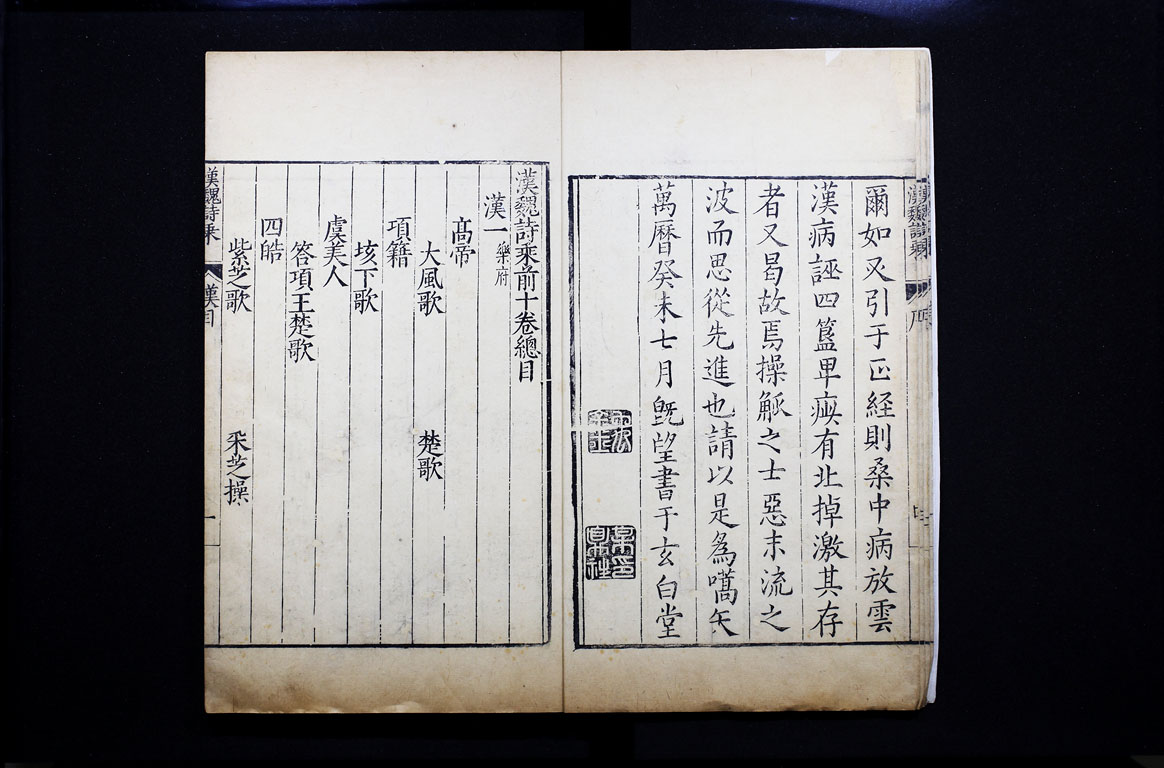 爾如又引于正経則桑中病放雲
漢病誣四簋卑瘐有北掉激其存
者又曷故焉操觚之士惡末流之
波而思從先進也請以是為嚆矢
萬曆癸未七月旣望書于玄白堂
漢魏詩乘前十卷總目
漢一 樂府
高帝
大風歌 楚歌
項籍
垓下歌
虞美人
答項王楚歌
四皓
紫芝歌 采芝操
漢魏詩乘 漢目 一